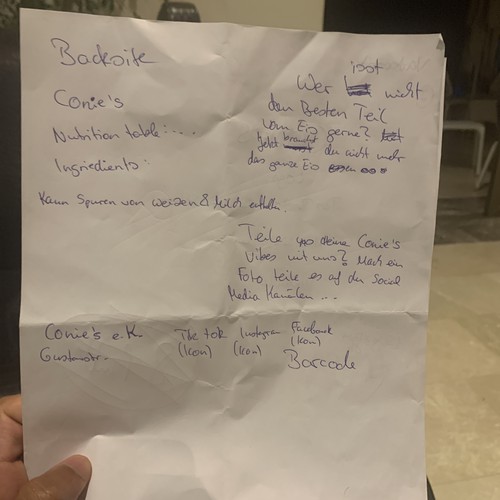 Backsite
Conie's
Nutrition totale : ....
Ingriedients :
Kann Spuren von weizen & Milch enthalten.
isst
Wer nicht
den Besten Teil
vom Eis gerne?
Jetzt brauchst du nicht mehr
das ganze Eis
Teile uns deine Conie's
Vibes mit uns? Mach ein
Foto teile es auf den Social
Media Kanälen ...
Conie's e.K. Tik tok Instagram Facebook
(Icon) (Icon) (Icon)
Barcode